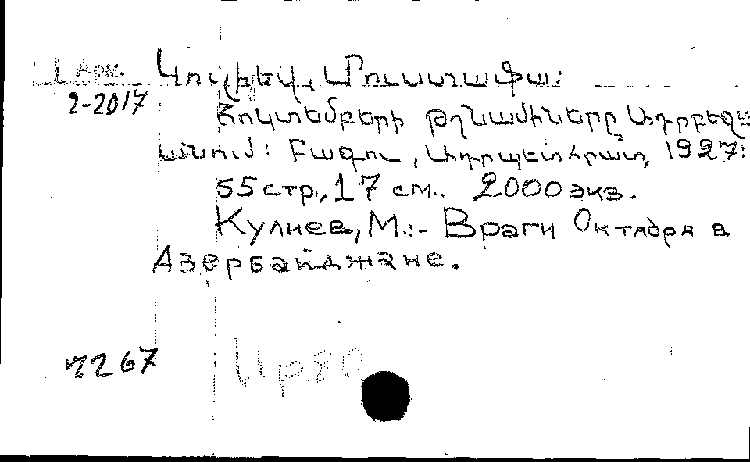 1 Арм. Կուլիեվ, Մուստաֆա:
2-2017 Հոկտեմբերի թշնամիները Ադրբեջ
անում: Բագու, Ադրպետհրատ, 1927:
55 стр., 17 см. 2000 экз.
Кулиев, М.:- Враги Октября в
Азербайджане.
7267